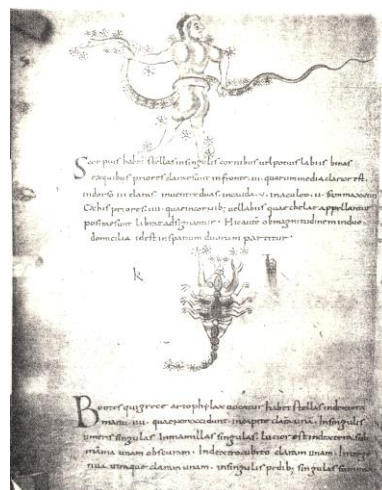 Scorpius habet stellas insingulis cornibus vel potius labiis binas
exquibus priores claraesunt infronte. iii. quarum media clarior est.
indorso iii claras. inventre duas. incauda. v. inaculeo. ii. Summa xviiii
Exhis priores. iiii. quaeincornib; vellabiis quae chelae appellantur
positaesunt librae adsignantur. Hicautē obmagnitudinem induo
domicilia idest inspatium duorum partitur.
k
Bootes quigrece arctophylax vocatur habet stellas indextera
manu. iiii. quaenonoccidunt. incapite claram unā. Insingulis
umeris singulas. Inmamillas singulas. lucior est indextera. sub
mama unam obscuram. Indextro cubito claram unam. In
utraque claram unam. insingulis pedib; singulas